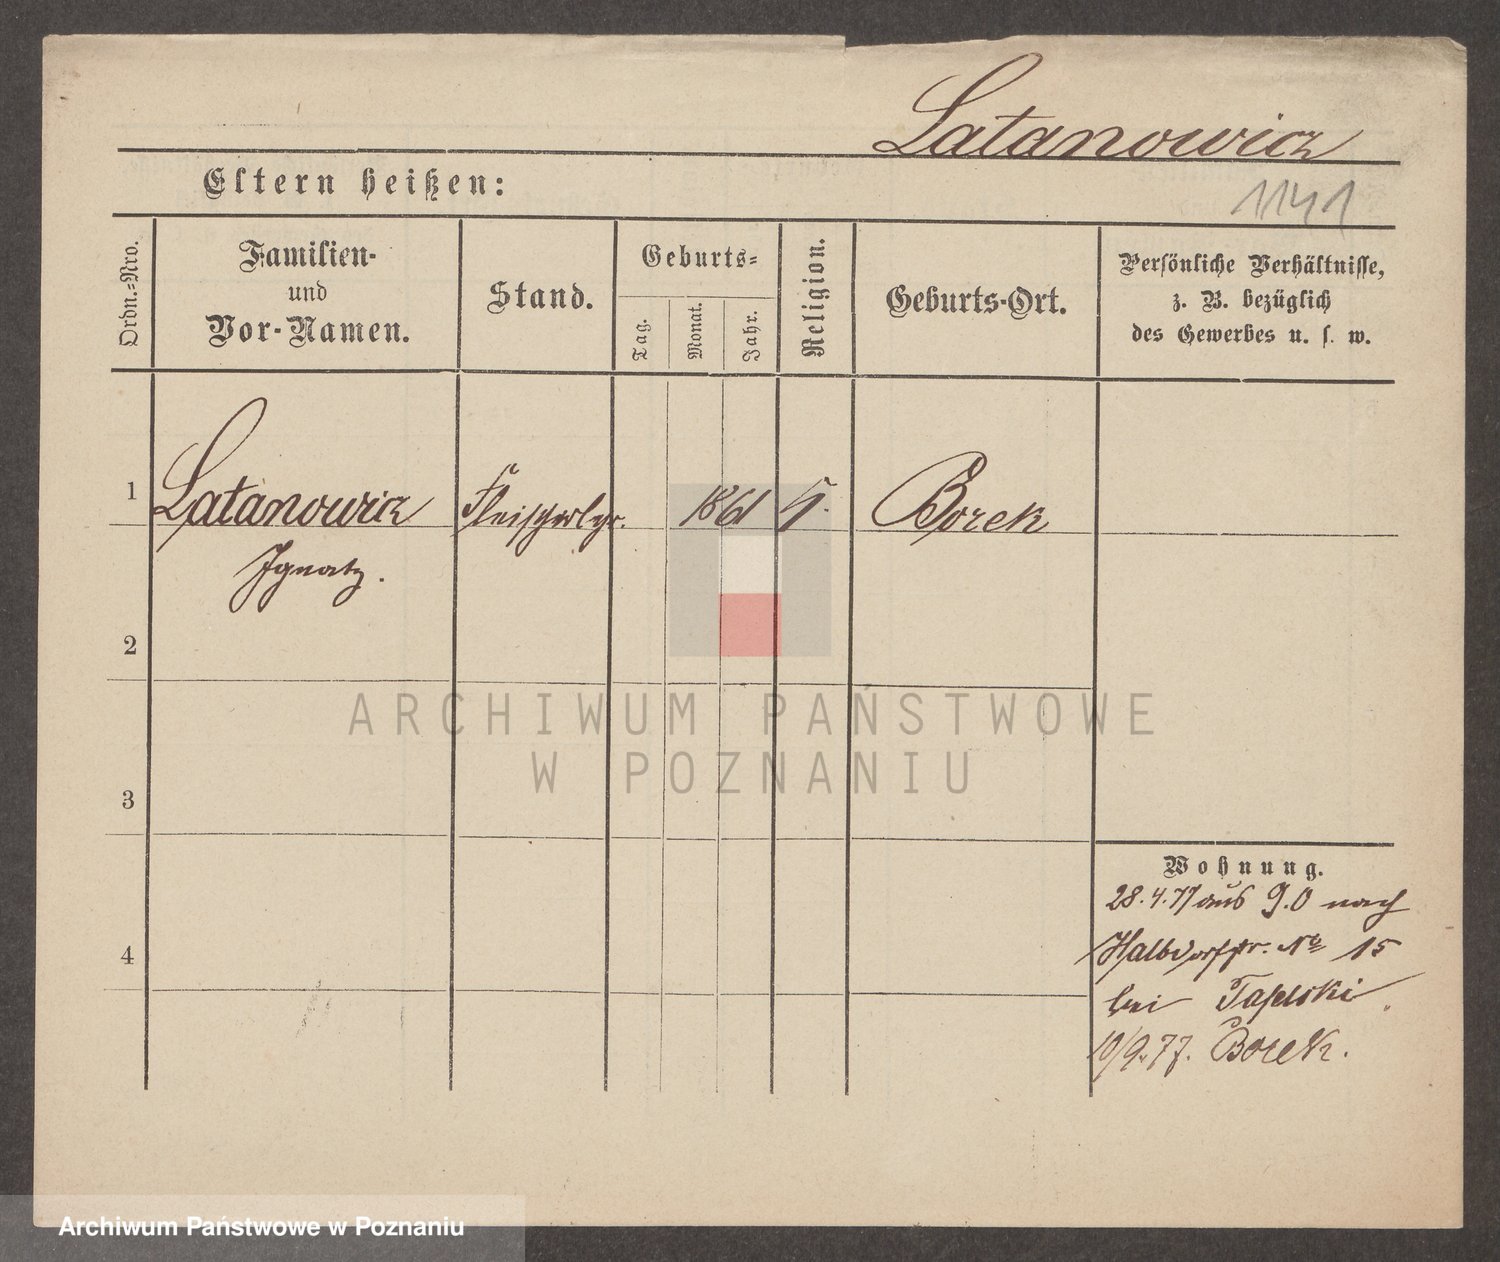 Latanowicz
Eltern heißen:
1141
Ordn.-Nro.
Familien-
und
Vor-Namen.
Stand.
Geburts-
Tag.
Monat.
Jahr.
Religion.
Geburts-Ort.
Persönliche Verhältnisse,
z. B. bezüglich
des Gewerbes u. s. w.
1 Latanowicz Fleischerlgr. 1861 Borek
Ignatz.
2
3
4
Wohnung.
28.4.77 aus nach
Halbdorfstr. No 15
bei
10/9.77. Borek.
ARCHIWUM PAŃSTWOWE
W POZNANIU
Archiwum Państwowe w Poznaniu